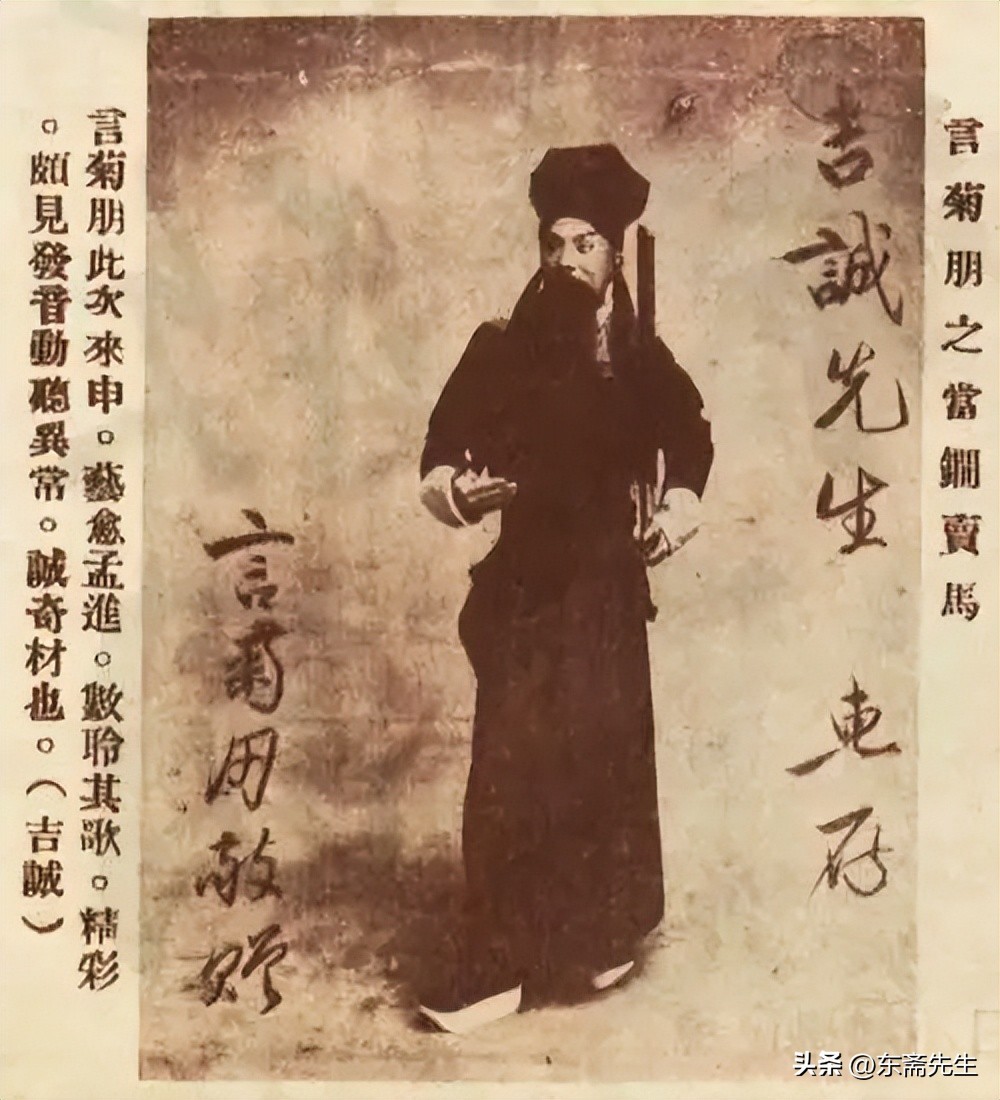 言菊朋之當鐧賣馬
吉誠先生 惠存
言菊朋敬贈
言菊朋此次來申。藝愈孟進。數聆其歌。精彩
。頗見發音動聽異常。誠奇材也。（吉誠）
头条 @东斋先生